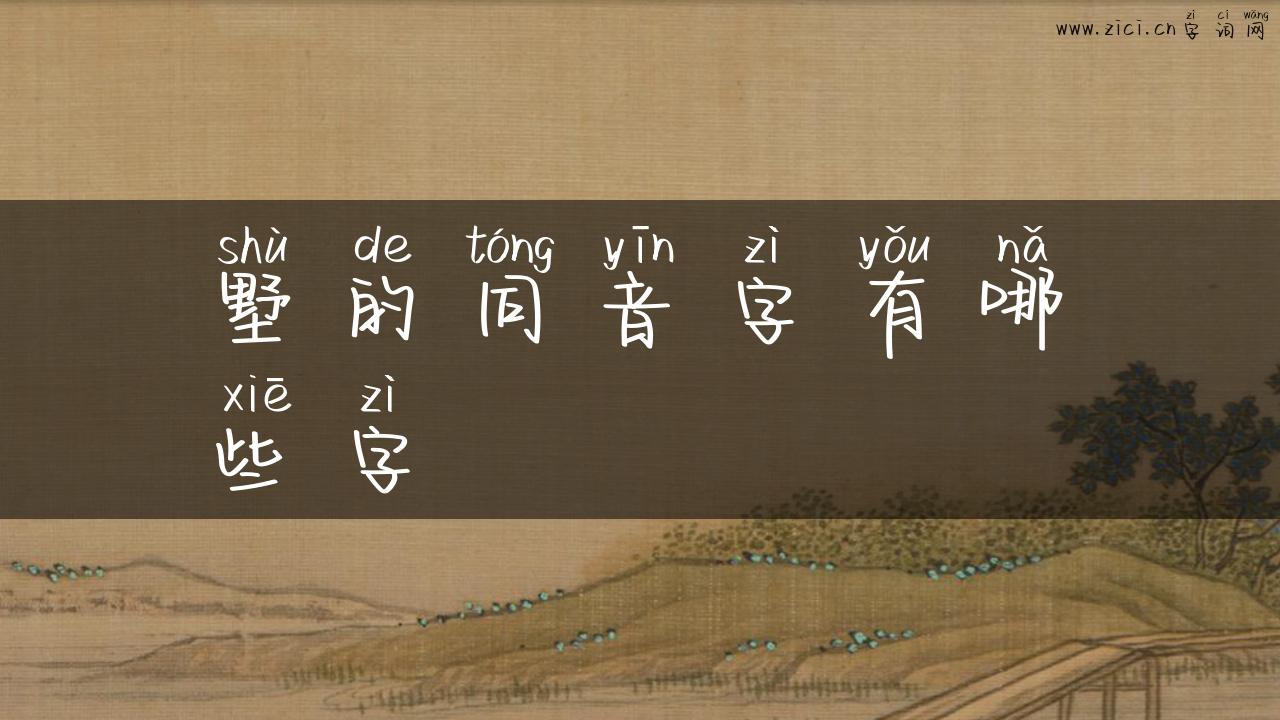 zì cí wǎng
www.zici.cn字词网
shù de tóng yīn zì yǒu nǎ
墅的同音字有哪
xiē zì
些字